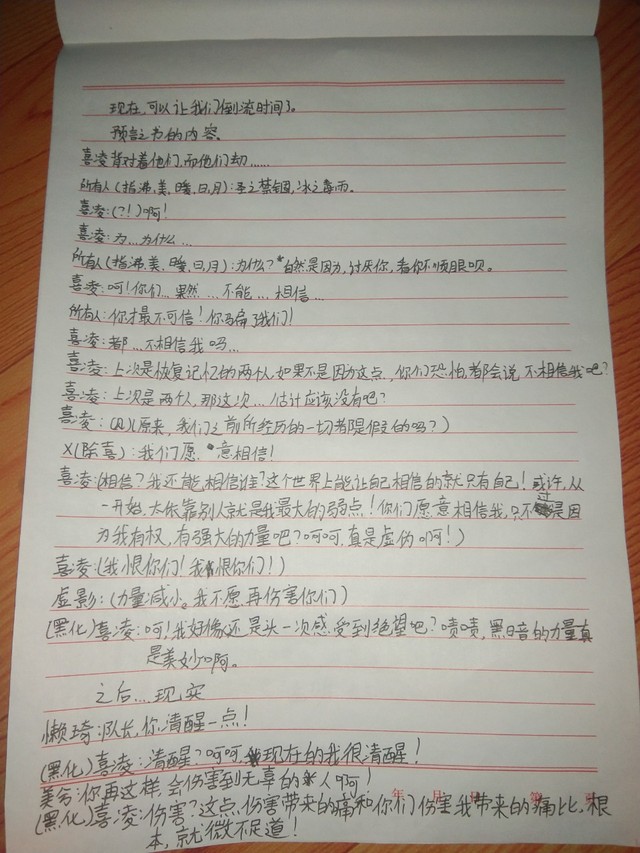 现在,可以让我们倒流时间了。
预言之书的内容。
喜凌背对着他们,而他们却……
所有人(指沸、美、暖、日、月):季之禁锢,冰之毒雨。
喜凌:(?!)啊!
喜凌:为…为什么…
所有人(指沸、美、暖、日、月):为什么?自然是因为,讨厌你,看你不顺眼呗。
喜凌:呵!你们…果然…不能…相信…
所有人:你才最不可信!你骗了我们!
喜凌:都…不相信我吗…
喜凌:上次是恢复记忆的两个人,如果不是因为这点,你们恐怕,都会说不相信我吧?
喜凌:上次是两个人,那这次…估计应该没有吧?
喜凌:(原来,我们之前所经历的一切都是假的吗?)
X(除喜):我们愿意相信!
喜凌:(相信?我还能相信谁?这个世界上能让自己相信的就只有自己!或许,从
一开始,太依靠别人就是我最大的弱点!你们愿意相信我,只不过是因
为我有权,有强大的力量吧?呵呵,真是虚伪啊!)
喜凌:(我恨你们!我恨你们!)
虚影:(力量减小。我不愿再伤害你们)
(黑化)喜凌:呵!我好像还是头一次感受到绝望吧?啧啧,黑暗的力量真
是美妙啊。
之后…现实
懒琦:队长,你清醒一点!
(黑化)喜凌:清醒?呵呵,现在的我很清醒!
美兮:你再这样,会伤害到无辜的人啊!
年 月 日 第 页
(黑化)喜凌:伤害?这点伤害带来的痛和你们伤害我带来的痛比,根
本,就微不足道!